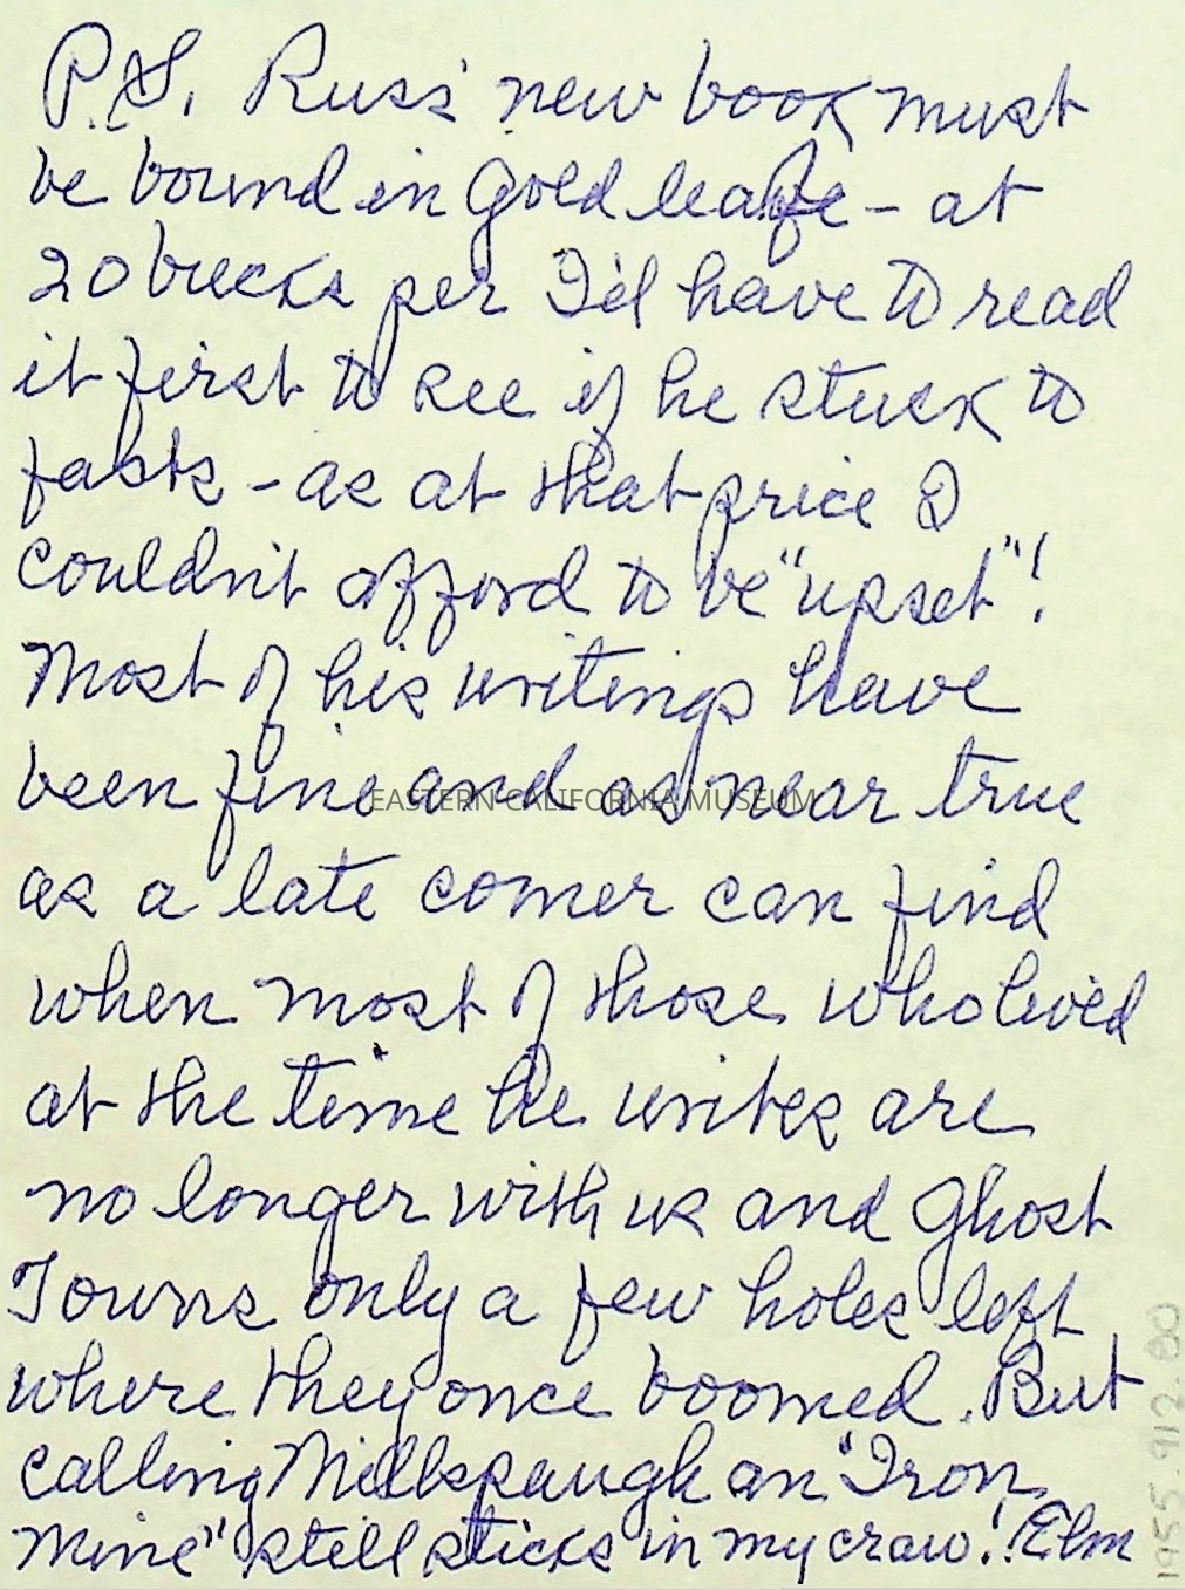 P.S. Russ' new book must
be bound in gold leafe - at
20 bucks per I'd have to read
it first to see if he stuck to
fakts - as at that price I
couldn't afford to be "upset"!
Most of his writings have
been fine and as near true
EASTERN CALIFORNIA MUSEUM
as a late comer can find
when most of those who lived
at the time he writes are
no longer with us and Ghost
Towns only a few holes left
where they once boomed. But
calling Millspaugh an "Iron
Mine" still sticks in my craw! Elm
1955.912.80